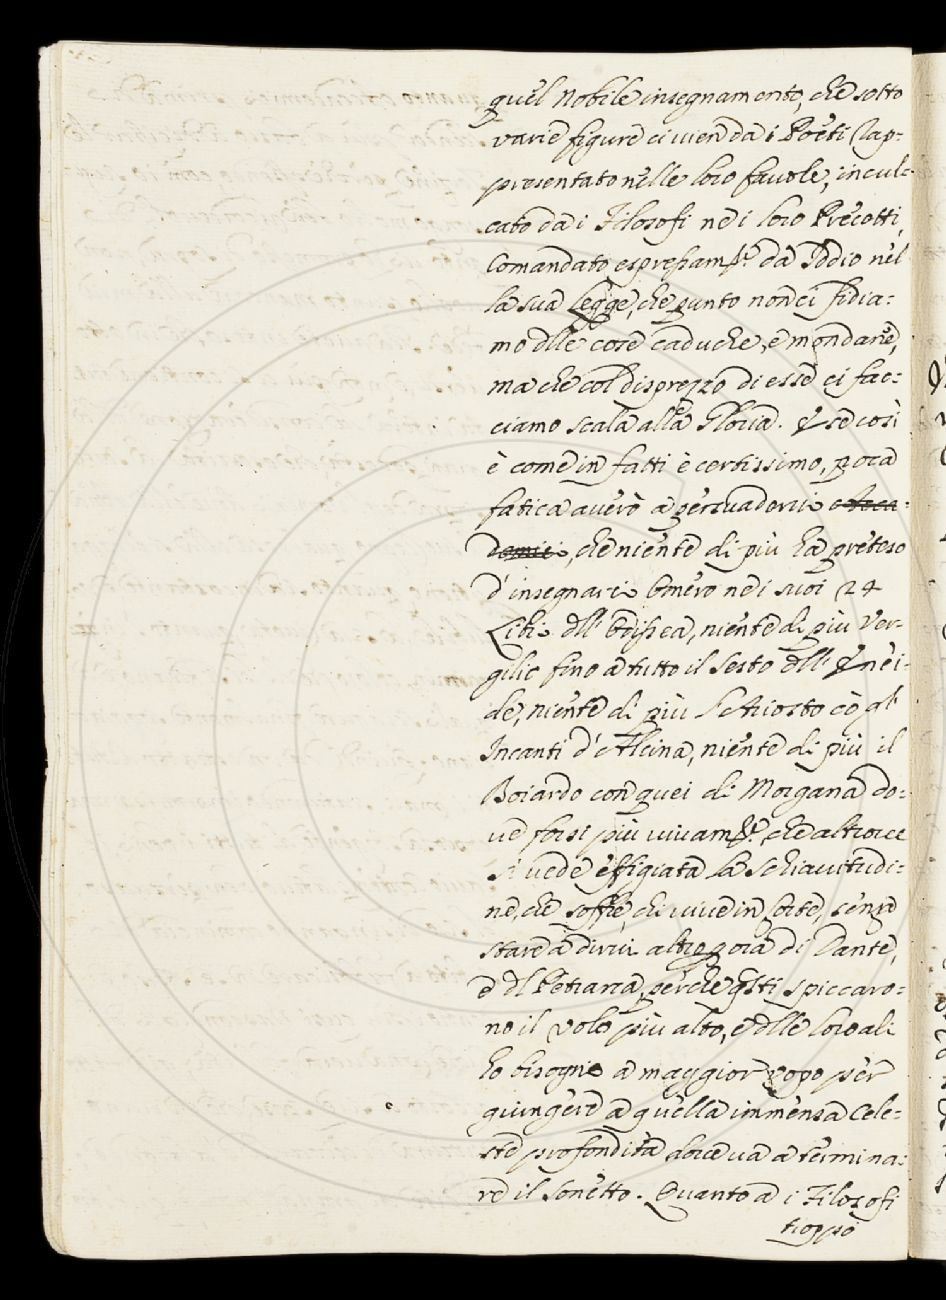 quel Nobile insegnamento, che sotto
varie figure ci vien da i Poeti rap-
presentato nelle loro favole, incul-
cato da i Filosofi ne i loro Precetti,
Comandato espressam.te da Iddio nel
la sua Legge, che punto non ci fidia-
mo dlle cose caduche, e mondane,
ma che col disprezzo di esse ci fac-
ciamo scala alla Gloria. E se così
è come in fatti è certissimo, poca
fatica averò a persuadervi o Aca-
demici, che niente di più ha preteso
d'insegnarci Omero ne i suoi 24
Libri dll'Odissea, niente di più Ver-
gilio fino a tutto il sesto dll'Enei-
de, niente di più l'Ariosto cõ gl'
Incanti d'Alcina, niente di più il
Boiardo con quei di Morgana do-
ve forsi più vivam.te, che altrove
si vede effigiata la schiavitudi-
ne, che soffre chi vive in Corte, senza
stare a dirvi altro p ora di Dante,
e dl Petrarca, perche qsti spiccaro-
no il volo più alto, e dlle loro ali
ho bisogno a maggior uopo per
giungere a quella immensa Cele-
ste profondità dove va a termina-
re il Sonetto. Quanto a i Filosofi
troppo